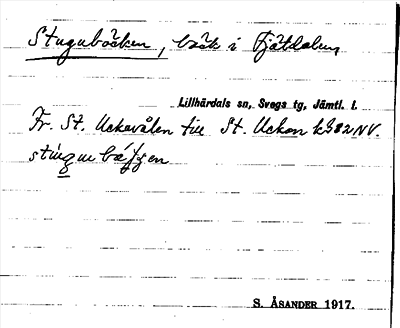 Stugubäcken, bäck i Fjätdalen,
Lillhärdals sn, Svegs tg, Jämtl. l.
Fr. St. Uckavålen till St. Uckan k382NV.
S. ÅSANDER 1917.